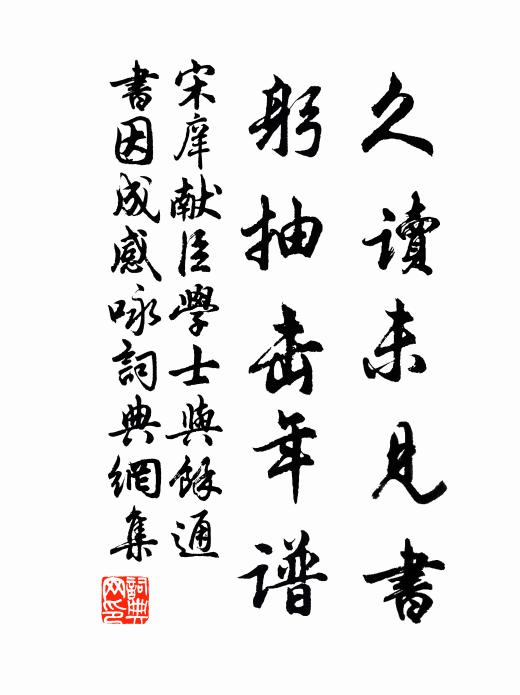 久讀未見書
躬抽年譜
宋庠献臣學士與餘通
書因成感咏詞典網集
詞典
网印